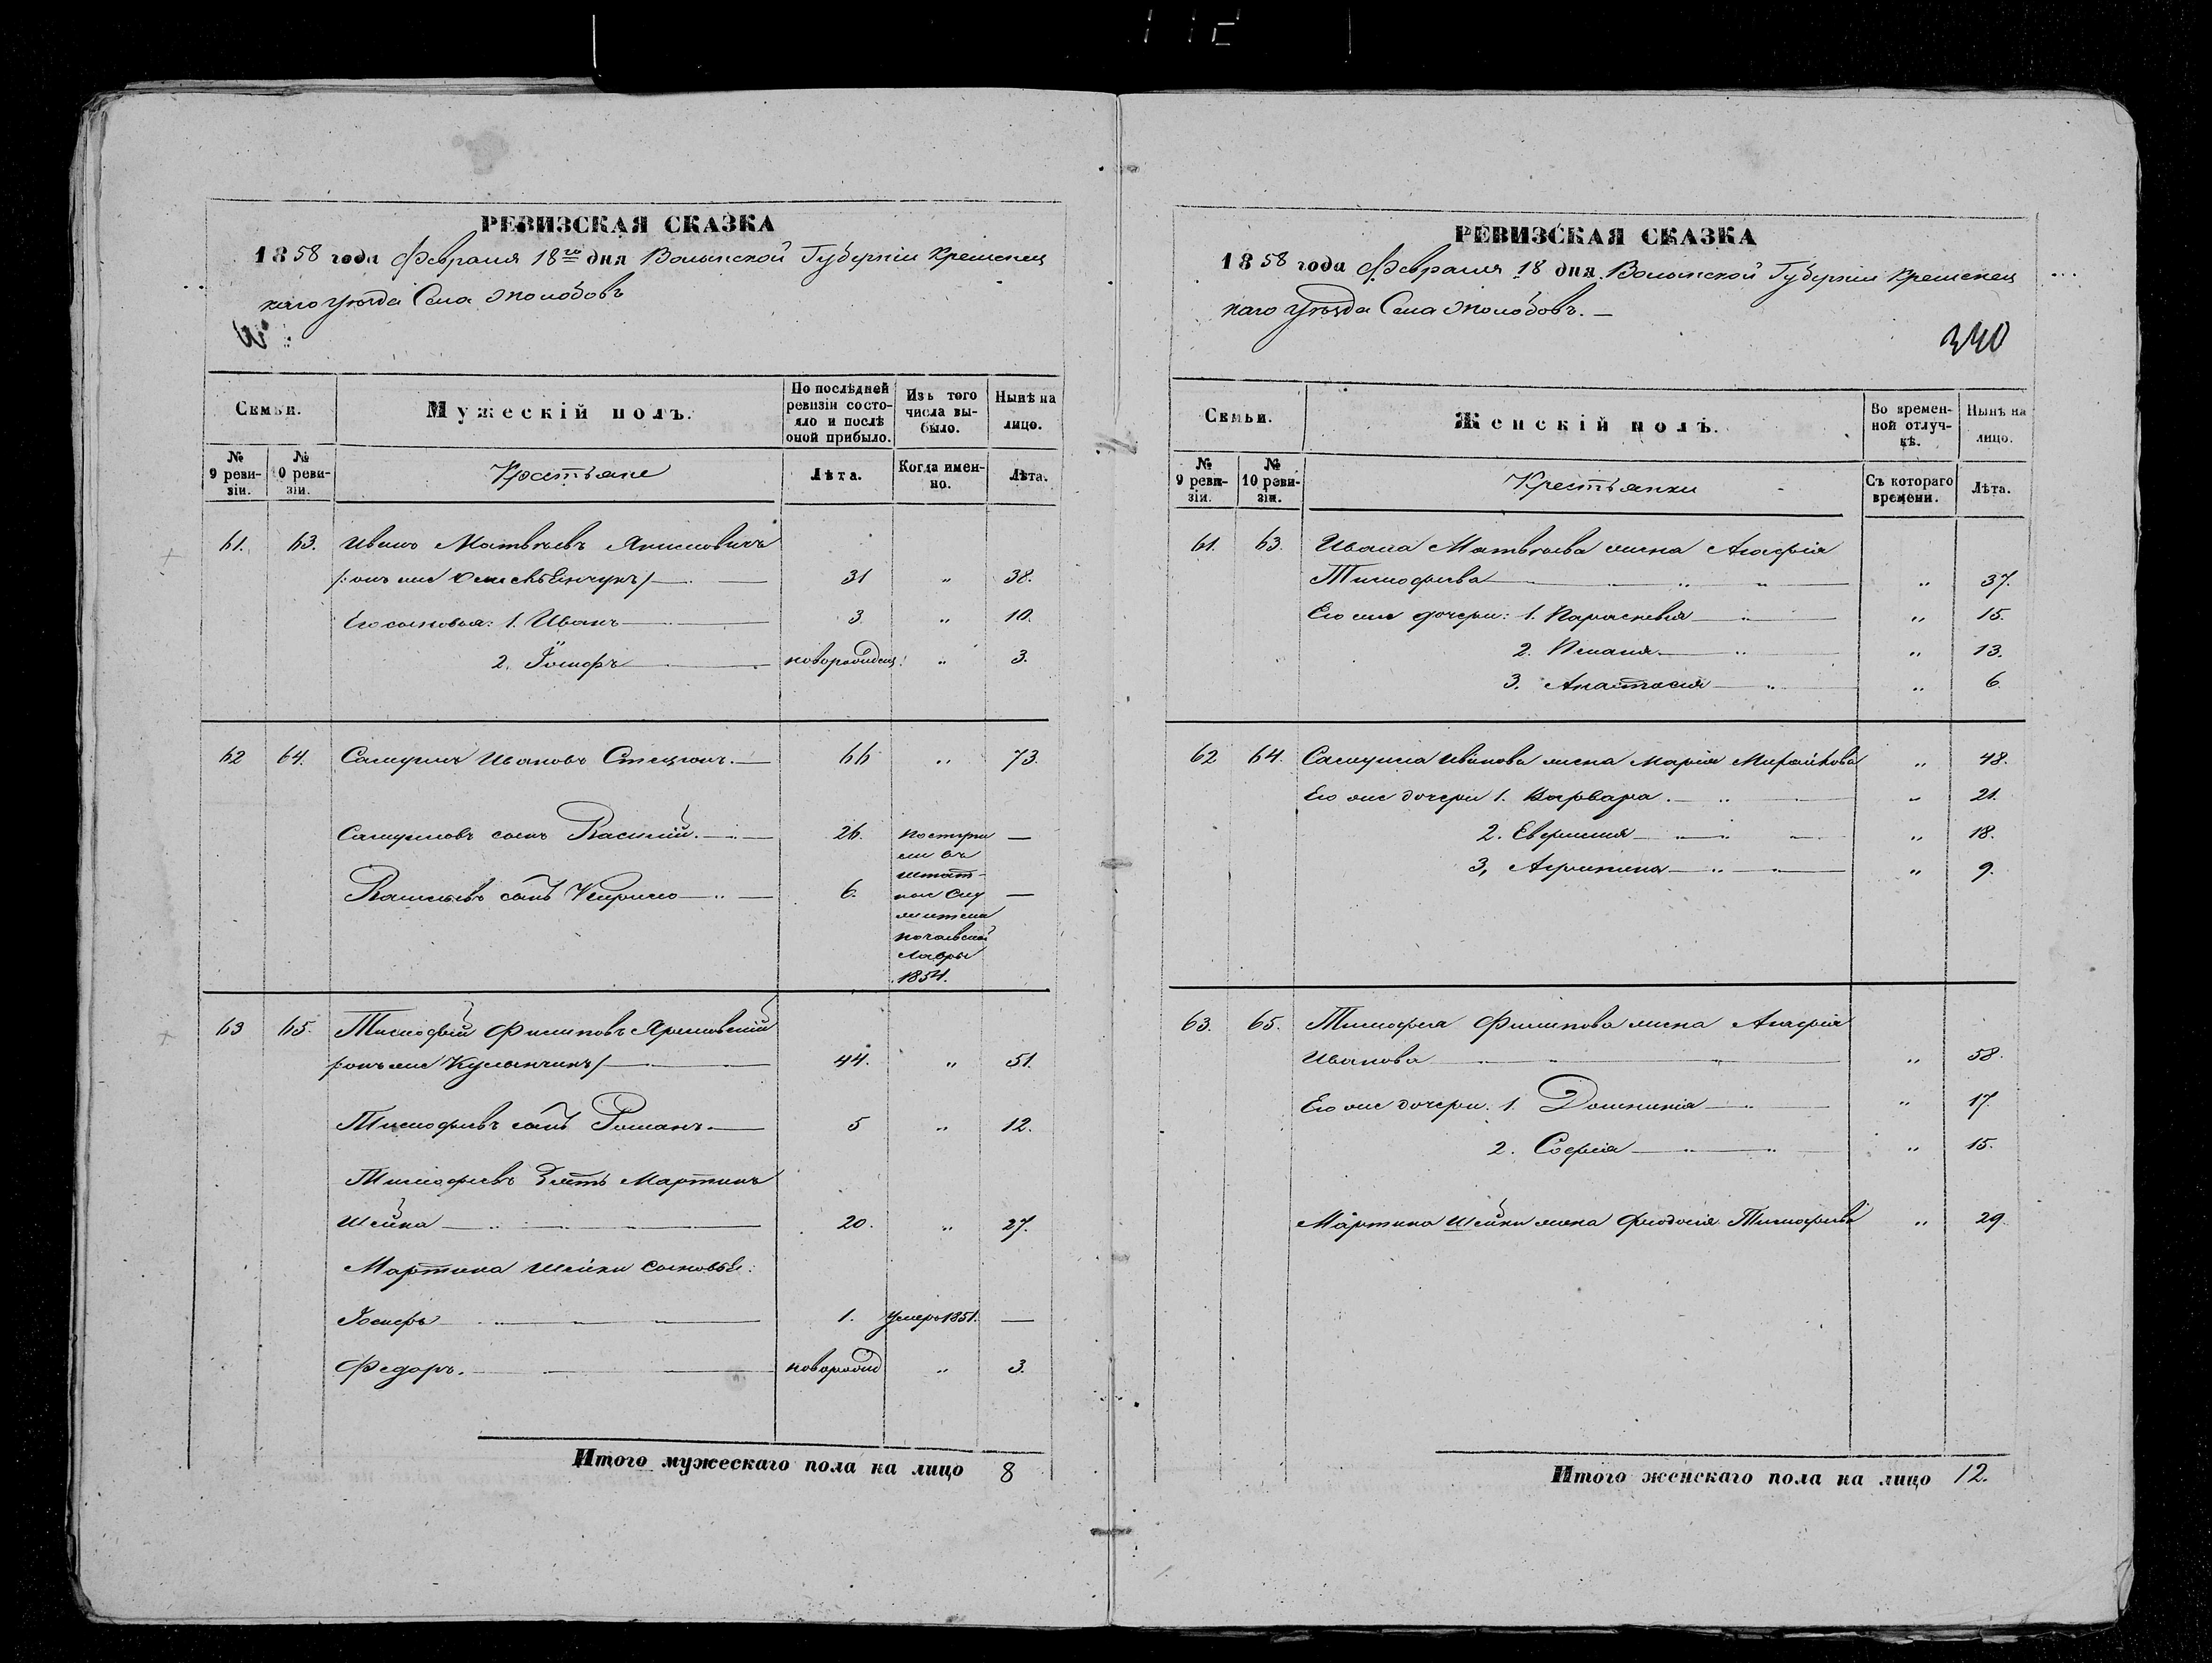 РЕВИЗСКАЯ СКАЗКА
1858 года Февраля 18го дня Волынской Губерніи Кременец
каго Уѣзда Села Жолобовъ
Семьи.
Мужескій полъ.
По послѣдней ревизіи состояло и послѣ оной прибыло.
Изъ того числа выбыло.
Нынѣ на лицо.
№ 9 ревизіи.
№ 10 ревизіи.
Крестьяне
Лѣта.
Когда именно.
Лѣта.
61. 63. Иванъ Матвѣевъ
/:онъ же 31 „ 38.
Его сыновья: 1. Иванъ 3. „ 10.
2. Іосифъ новорожденц: „ 3.
62 64. Самуилъ Ивановъ Стецюкъ. 66 „ 73.
Самуиловъ сынъ Василій. 26. поступи —
ли въ
штат-
Васильевъ сынъ Кирило 6. ные слу —
жители
почаевской
Лавры
1854.
63 65. Тимофѣй Филиповъ Яремовскій
/:онъ же 44. „ 51.
Тимофѣевъ сынъ Романъ. 5 „ 12.
Тимофѣевъ зять Мартинъ
Шейка 20. „ 27.
Мартина Шейки сыновья:
Іосифъ 1. Умеръ 1851. —
Федоръ. новорожд „ 3.
Итого мужескаго пола на лицо 8
РЕВИЗСКАЯ СКАЗКА
1858 года Февраля 18 дня Волынской Губерніи Кременец
каго Уѣзда Села Жолобовъ. —
340
Семьи.
Женскій полъ.
Во временной отлучкѣ.
Нынѣ на лицо.
№ 9 ревизіи.
№ 10 ревизіи.
Крестьянки
Съ котораго времени.
Лѣта.
61. 63. Ивана Матвѣева жена Агафія
Тимофѣева „ 37.
Его же дочери: 1. Параскевія „ 15.
2. „ 13.
3. Анастасія „ 6.
62 64. Самуила Иванова жена Марія Михайлова „ 48.
Его же дочери 1. Варвара. „ 21.
2. Евфимія „ 18.
3, Агрипина „ 9.
63. 65. Тимофея Филипова жена Агафія
Иванова „ 58.
Его же дочери: 1. Домникія „ 17.
2. Софія „ 15.
Мартина Шейки жена Феодосія Тимофѣева „ 29.
Итого женскаго пола на лицо 12.